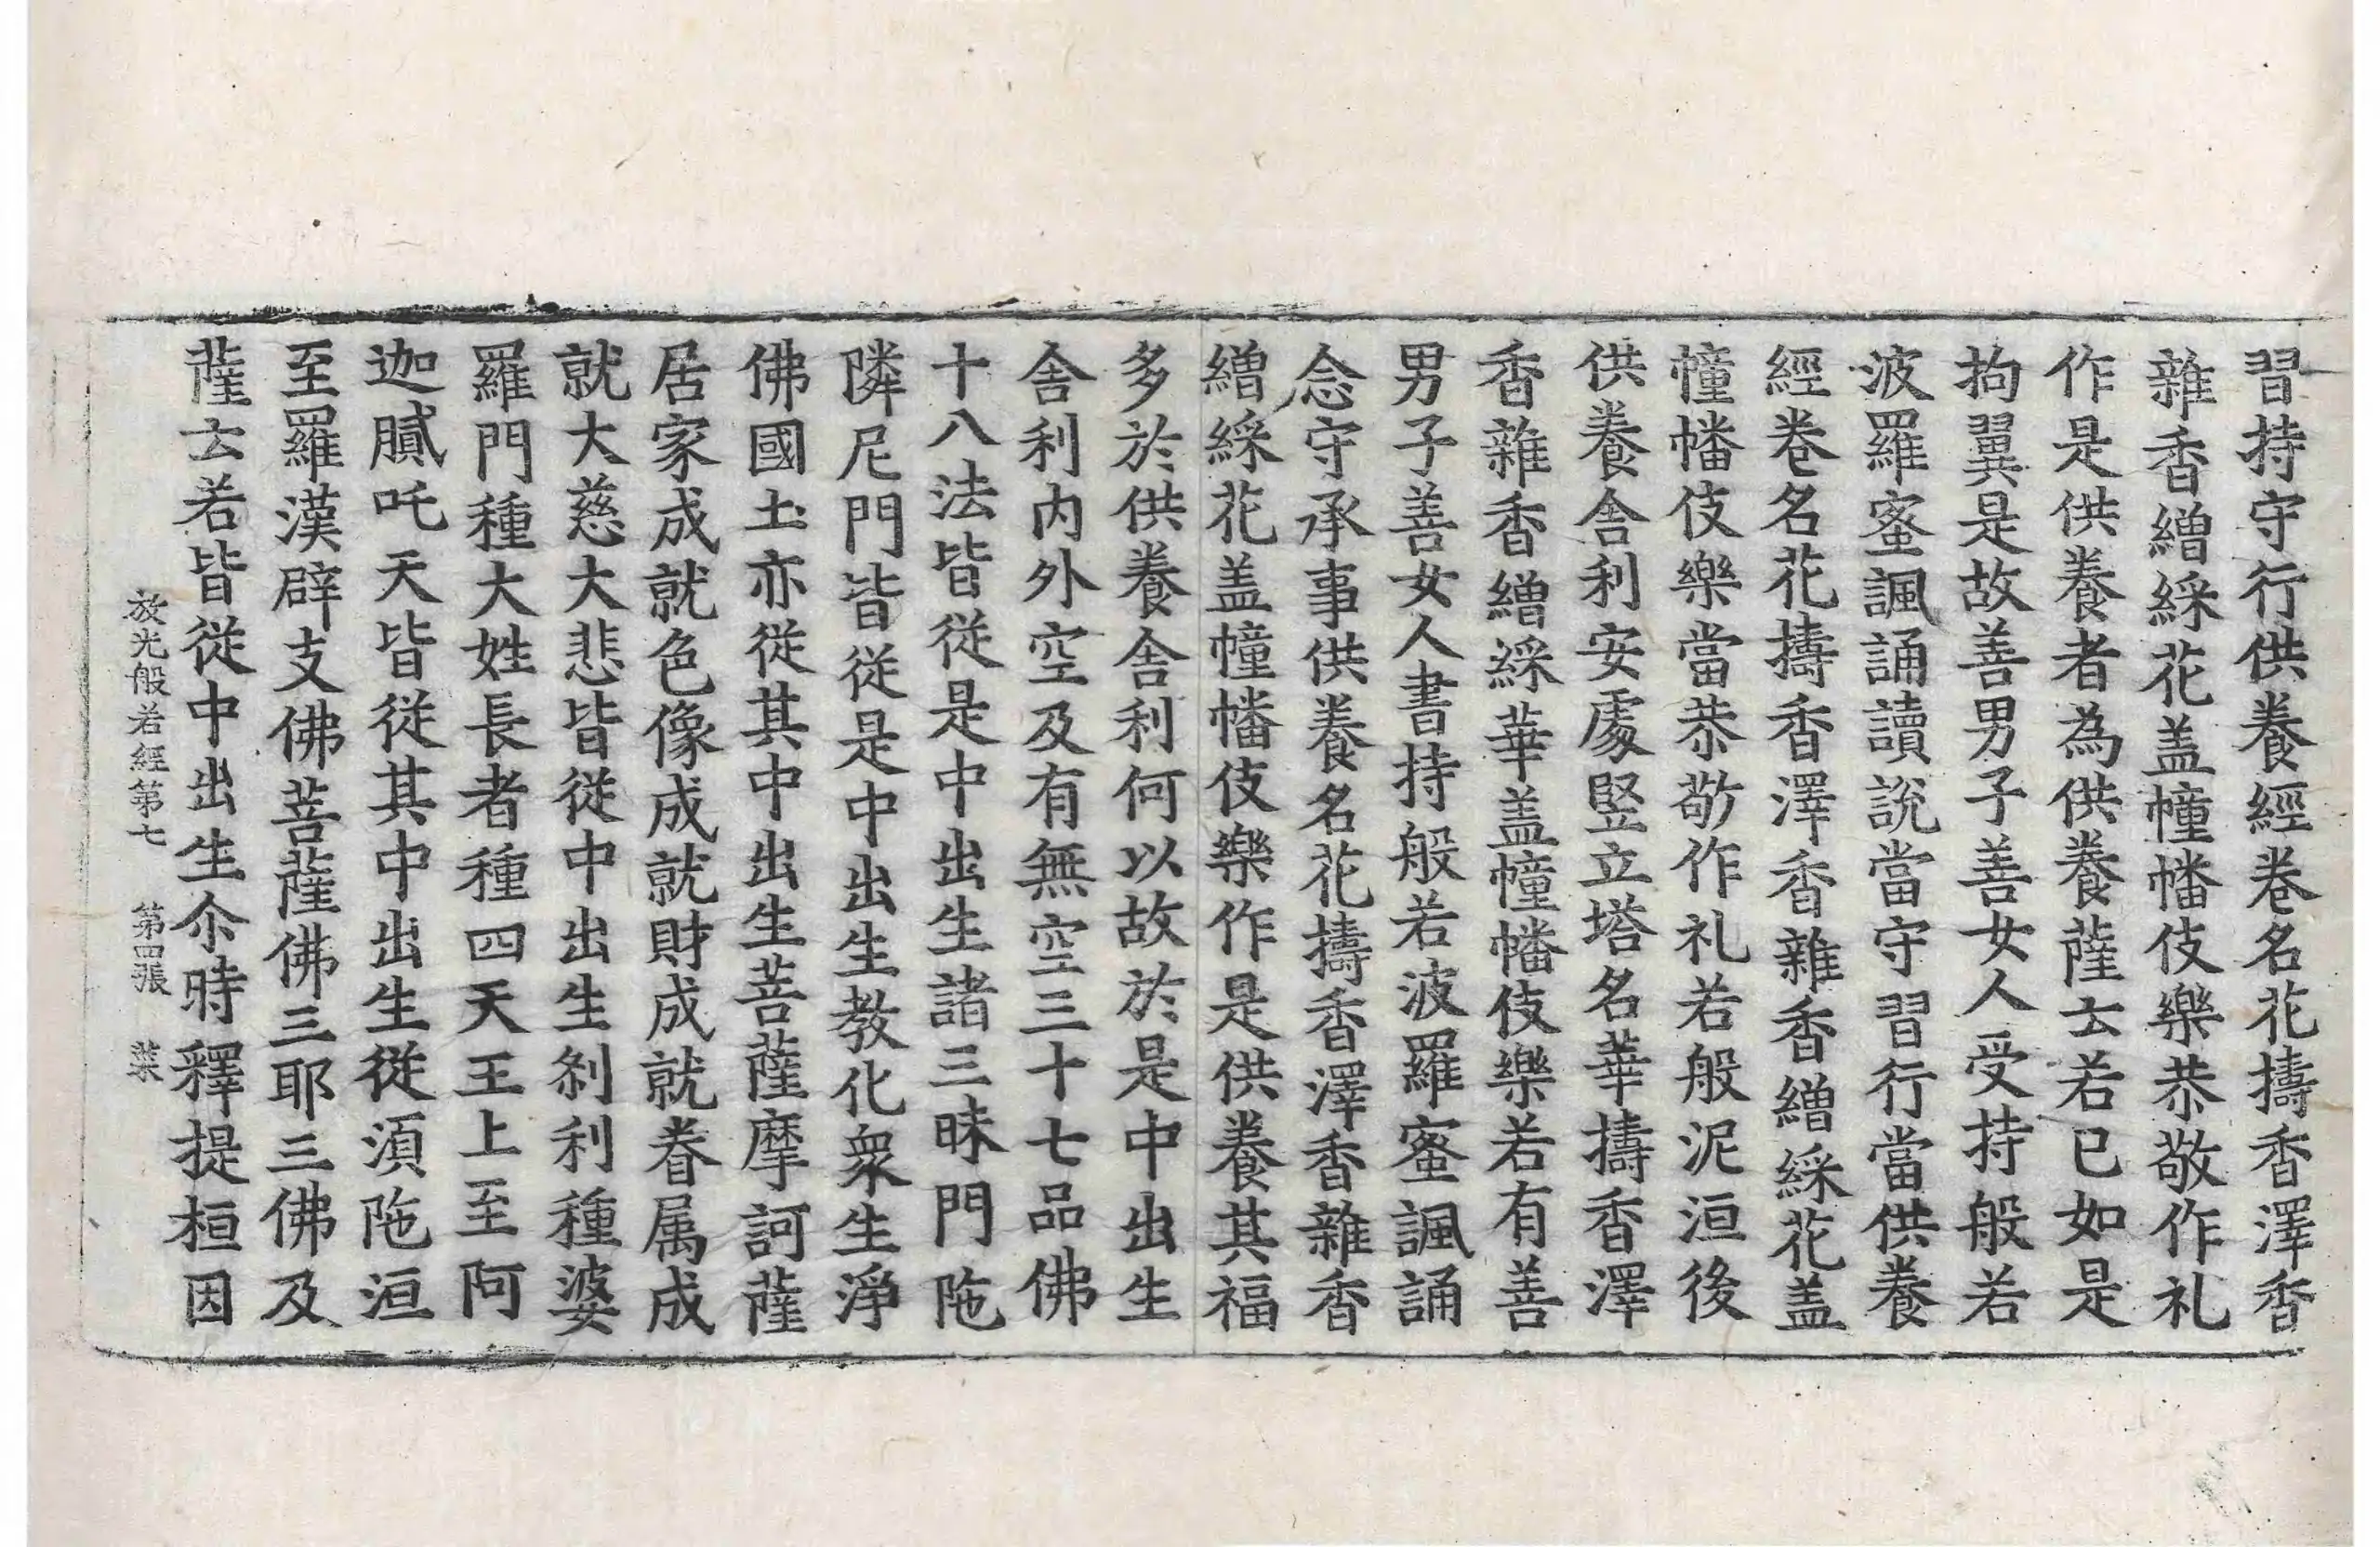 習持守行供養經卷名花擣香澤香
雜香繒綵花盖幢幡伎樂恭敬作礼
作是供養者為供養薩云若已如是
拘翼是故善男子善女人受持般若
波羅蜜諷誦讀說當守習行當供養
經卷名花擣香澤香雜香繒綵花盖
幢幡伎樂當恭敬作礼若般泥洹後
供養舍利安處竪立塔名華擣香澤
香雜香繒綵華盖幢幡伎樂若有善
男子善女人書持般若波羅蜜諷誦
念守承事供養名花擣香澤香雜香
繒綵花盖幢幡伎樂作是供養其福
多於供養舍利何以故於是中出生
舍利內外空及有無空三十七品佛
十八法皆從是中出生諸三昧門陁
隣尼門皆從是中出生教化衆生淨
佛國土亦從其中出生菩薩摩訶薩
居家成就色像成就財成就眷属成
就大慈大悲皆從中出生剎利種婆
羅門種大姓長者種四天王上至阿
迦膩吒天皆從其中出生從湏陁洹
至羅漢辟支佛菩薩佛三耶三佛及
薩云若皆從中出生尒時釋提桓因
放光般若經第七 第四張 菜